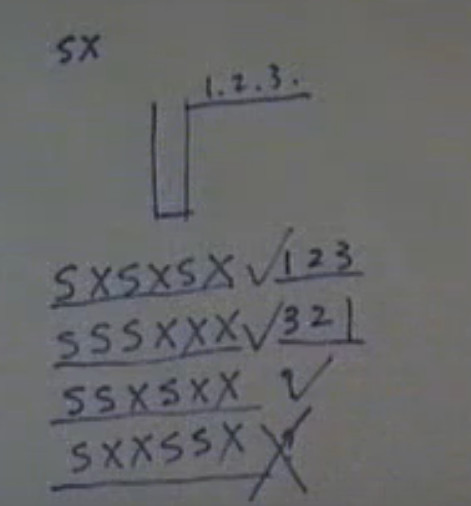 SX
1.2.3.
SXSXSX √ 123
SSSXXX √ 321
SSXSXX √
SXXSSX X